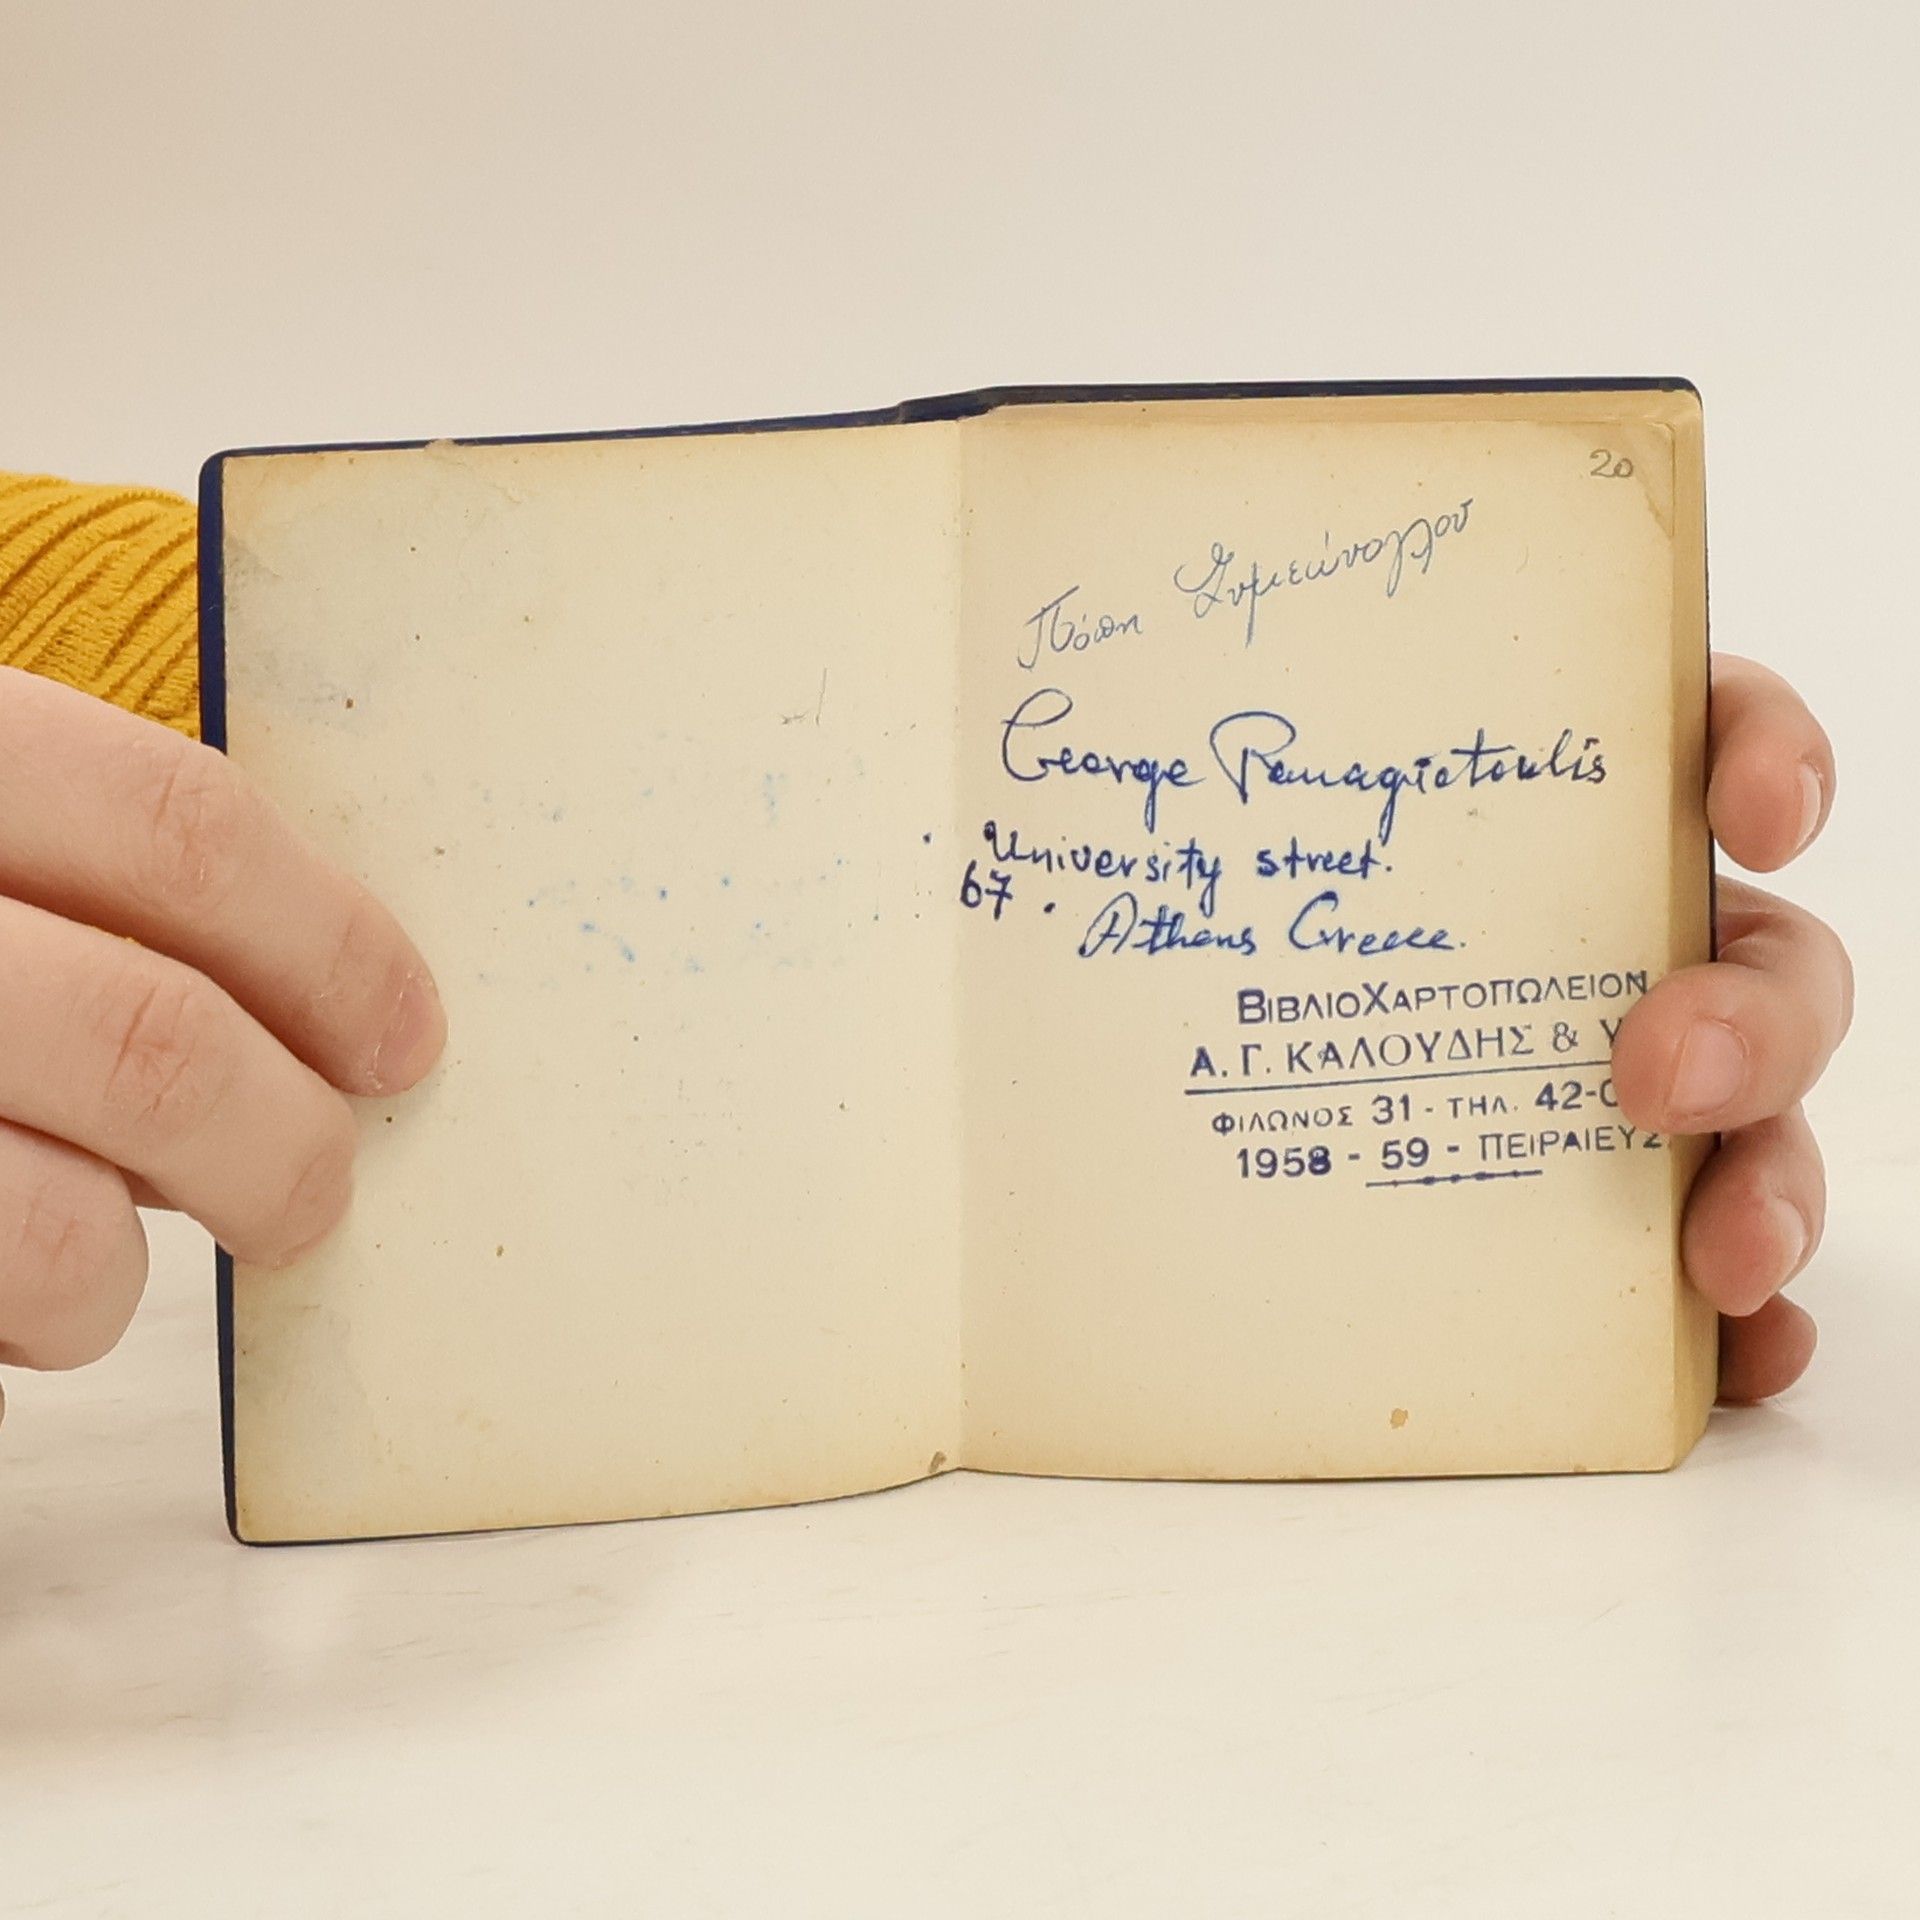 20
Πόπη Συμεώνογλου
George Panagiotoulis
University street.
67.
Athens Greece.
ΒΙΒΛΙΟΧΑΡΤΟΠΩΛΕΙΟΝ
Α. Γ. ΚΑΛΟΥΔΗΣ &
ΦΙΛΩΝΟΣ 31 - ΤΗΛ. 42-0
1958 - 59 - ΠΕΙΡΑΙΕΥΣ